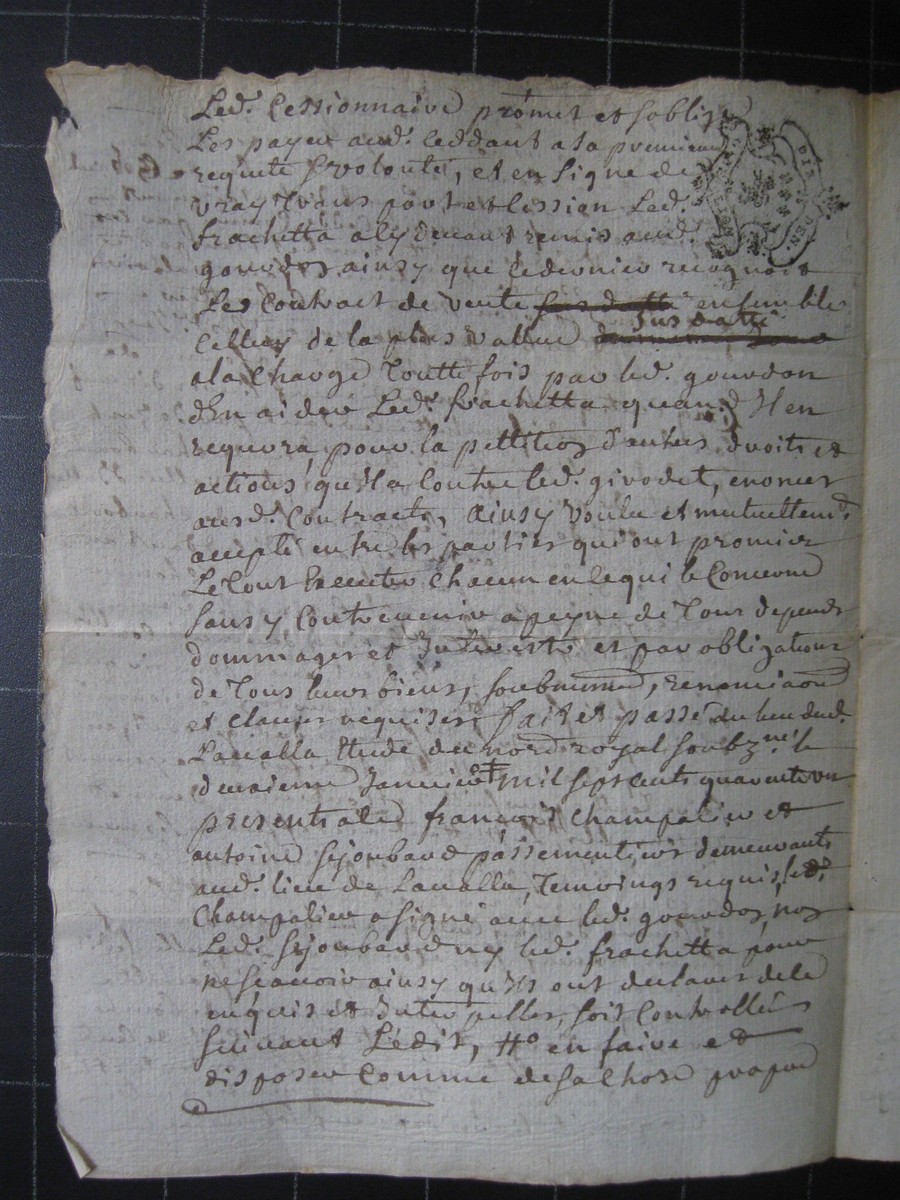 Led. Cessionnaire promet et soblige
Les payer aud. Ceddant a sa premiere
requete & volonté, et en signe de
vray Led.
frachetta a cy devant remis aud.
gourdon ainsy que ce dernier recognoit
Les Contract de vente ensemble
Celluy de la plus vallue sus datté
a la Charge Toutte fois par led. gourdon
d'En aider Led. frachetta quand Il en
requera, pour la pettition d'autres droits et
actions qu'Il a Contre led. girodet, enoncés
ausd. Contracts, ainsy voulu et mutuellemt.
accepté entre les parties qui ont promis
Le Tout Executer Chacun en ce qui le Concerne
sans y Contrevenir a peyne de Tous depends
dommages et Interests et par obligations
de Tous leurs biens, soubmissions, renonciaons
et clauses requises, fait et passé au lieu dud.
Lavalla Etude du nore. royal soubzné. le
deuxieme Janvier mil sept cents quarante un
presents a ce francois Champalier et
antoine sejoubard passementiers demeurants
aud. lieu de Lavalla, Temoings requis, led.
Champalier a signé avec led. gourdon, non
Led. sejoubard ny led. frachetta pour
ne scavoir ainsy qu'Ils ont declaré de ce
enquis et Interpellés, soit Controllé
suivant L'édit, ++o en faire et
disposer Comme de sa Chose propre